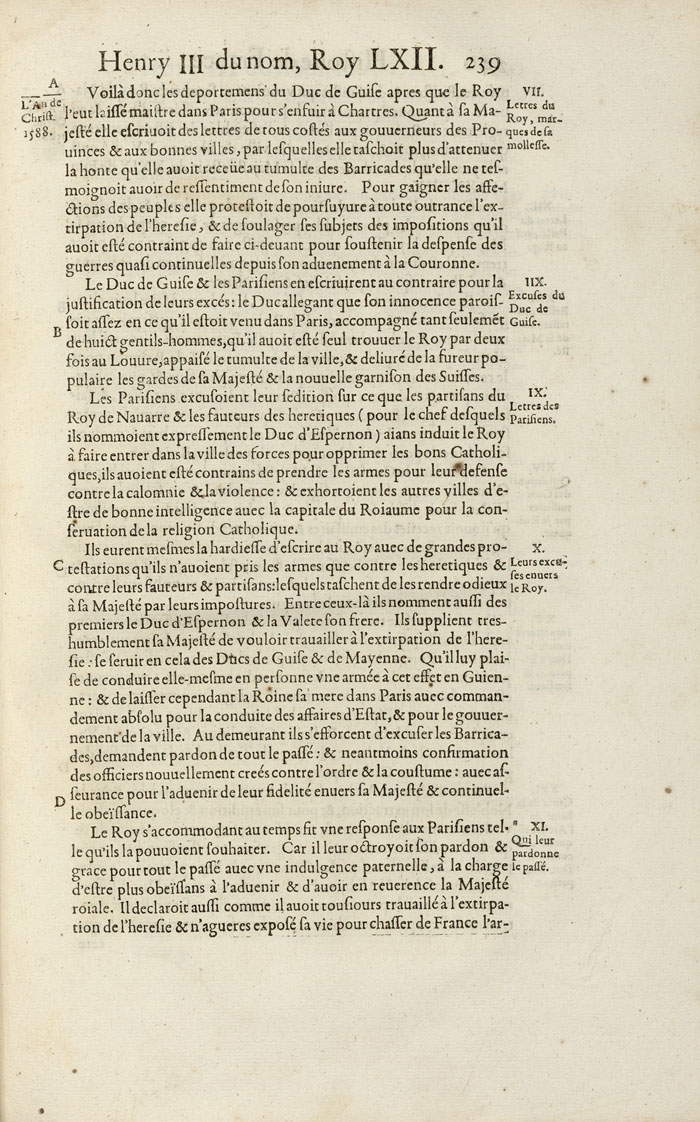 Henry III du nom, Roy LXII. 239
A
L'An de
Christ
1588.
Voilà donc les deportemens du Duc de Guise apres que le Roy
l'eut laissé maistre dans Paris pour s'enfuir à Chartres. Quant à sa Ma-
jesté elle escriuoit des lettres de tous costés aux gouuerneurs des Pro-
uinces & aux bonnes villes, par lesquelles elle taschoit plus d'attenuer
la honte qu'elle auoit receüe au tumulte des Barricades qu'elle ne tes-
moignoit auoir de ressentiment de son iniure. Pour gaigner les affe-
ctions des peuples elle protestoit de poursuyure à toute outrance l'ex-
tirpation de l'heresie, & de soulager ses subjets des impositions qu'il
auoit esté contraint de faire ci-deuant pour soustenir la despense des
guerres quasi continuelles depuis son aduenement à la Couronne.
VII.
Lettres du
Roy, mar-
ques de sa
mollesse.
Le Duc de Guise & les Parisiens en escriuirent au contraire pour la
justification de leurs excés: le Duc allegant que son innocence parois-
soit assez en ce qu'il estoit venu dans Paris, accompagné tant seulemẽt
B
de huict gentils-hommes, qu'il auoit esté seul trouuer le Roy par deux
fois au Louure, appaisé le tumulte de la ville, & deliuré de la fureur po-
pulaire les gardes de sa Majesté & la nouuelle garnison des Suisses.
IIX.
Excuses du
Duc de
Guise.
Les Parisiens excusoient leur sedition sur ce que les partisans du
Roy de Nauarre & les fauteurs des heretiques (pour le chef desquels
ils nommoient expressement le Duc d'Espernon) aians induit le Roy
à faire entrer dans la ville des forces pour opprimer les bons Catholi-
ques, ils auoient esté contrains de prendre les armes pour leur defense
contre la calomnie & la violence: & exhortoient les autres villes d'e-
stre de bonne intelligence auec la capitale du Roiaume pour la con-
seruation de la religion Catholique.
IX.
Lettres des
Parisiens.
Ils eurent mesmes la hardiesse d'escrire au Roy auec de grandes pro-
C
testations qu'ils n'auoient pris les armes que contre les heretiques &
contre leurs fauteurs & partisans: lesquels taschent de les rendre odieux
à sa Majesté par leurs impostures. Entre ceux-là ils nomment aussi des
premiers le Duc d'Espernon & la Valete son frere. Ils supplient tres-
humblement sa Majesté de vouloir trauailler à l'extirpation de l'here-
sie: se seruir en cela des Ducs de Guise & de Mayenne. Qu'il luy plai-
se de conduire elle-mesme en personne vne armée à cet effet en Guien-
ne: & de laisser cependant la Roine sa mere dans Paris auec comman-
dement absolu pour la conduite des affaires d'Estat, & pour le gouuer-
nement de la ville. Au demeurant ils s'efforcent d'excuser les Barrica-
des, demandent pardon de tout le passé: & neantmoins confirmation
des officiers nouuellement creés contre l'ordre & la coustume: auec as-
D
seurance pour l'aduenir de leur fidelité enuers sa Majesté & continuel-
le obeïssance.
X.
Leurs excu-
ses enuers
le Roy.
Le Roy s'accommodant au temps fit vne response aux Parisiens tel-
le qu'ils la pouuoient souhaiter. Car il leur octroyoit son pardon &
grace pour tout le passé auec vne indulgence paternelle, à la charge
d'estre plus obeïssans à l'aduenir & d'auoir en reuerence la Majesté
roiale. Il declaroit aussi comme il auoit tousiours trauaillé à l'extirpa-
tion de l'heresie & n'agueres exposé sa vie pour chasser de France l'ar-
XI.
Qui leur
pardonne
le passé.